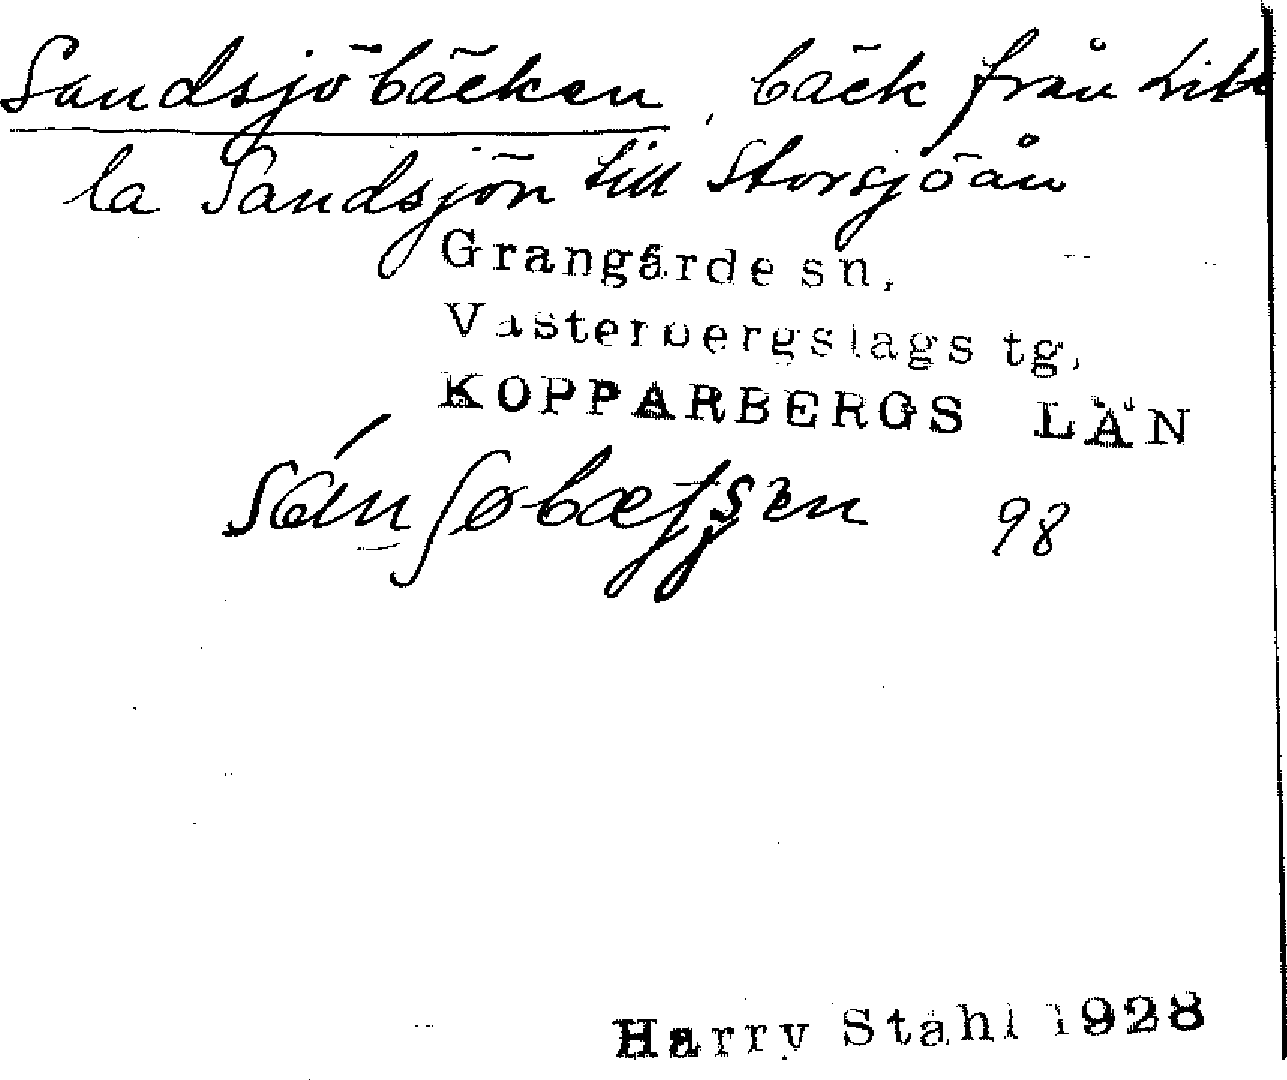 Sandsjöbäcken, bäck från Lil-
la Sandsjön till Storsjöån
Grangärde sn,
Västerbergslags tg,
KOPPARBERGS LÄN
98
Harry Ståhl 1928